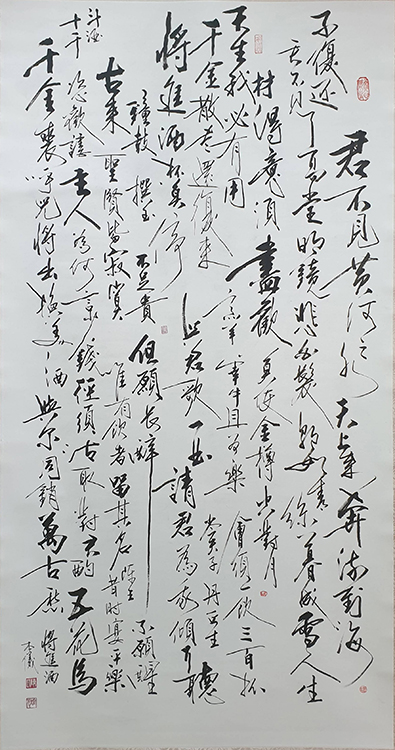 君不見黃河之水天上來奔流到海
不復還君不見高堂明鏡悲白髮朝如青絲暮成雪人生
得意須盡歡莫使金樽空對月
天生我材必有用
千金散盡還復來
烹羊宰牛且為樂會須一飲三百杯
岑夫子丹丘生
將進酒杯莫停
與君歌一曲請君為我傾耳聽
鐘鼓饌玉不足貴
但願長醉不願醒
古來聖賢皆寂寞
惟有飲者留其名陳王昔時宴平樂
斗酒十千恣歡謔主人為何言少錢徑須沽取對君酌五花馬
千金裘呼兒將出換美酒與爾同銷萬古愁
將進酒